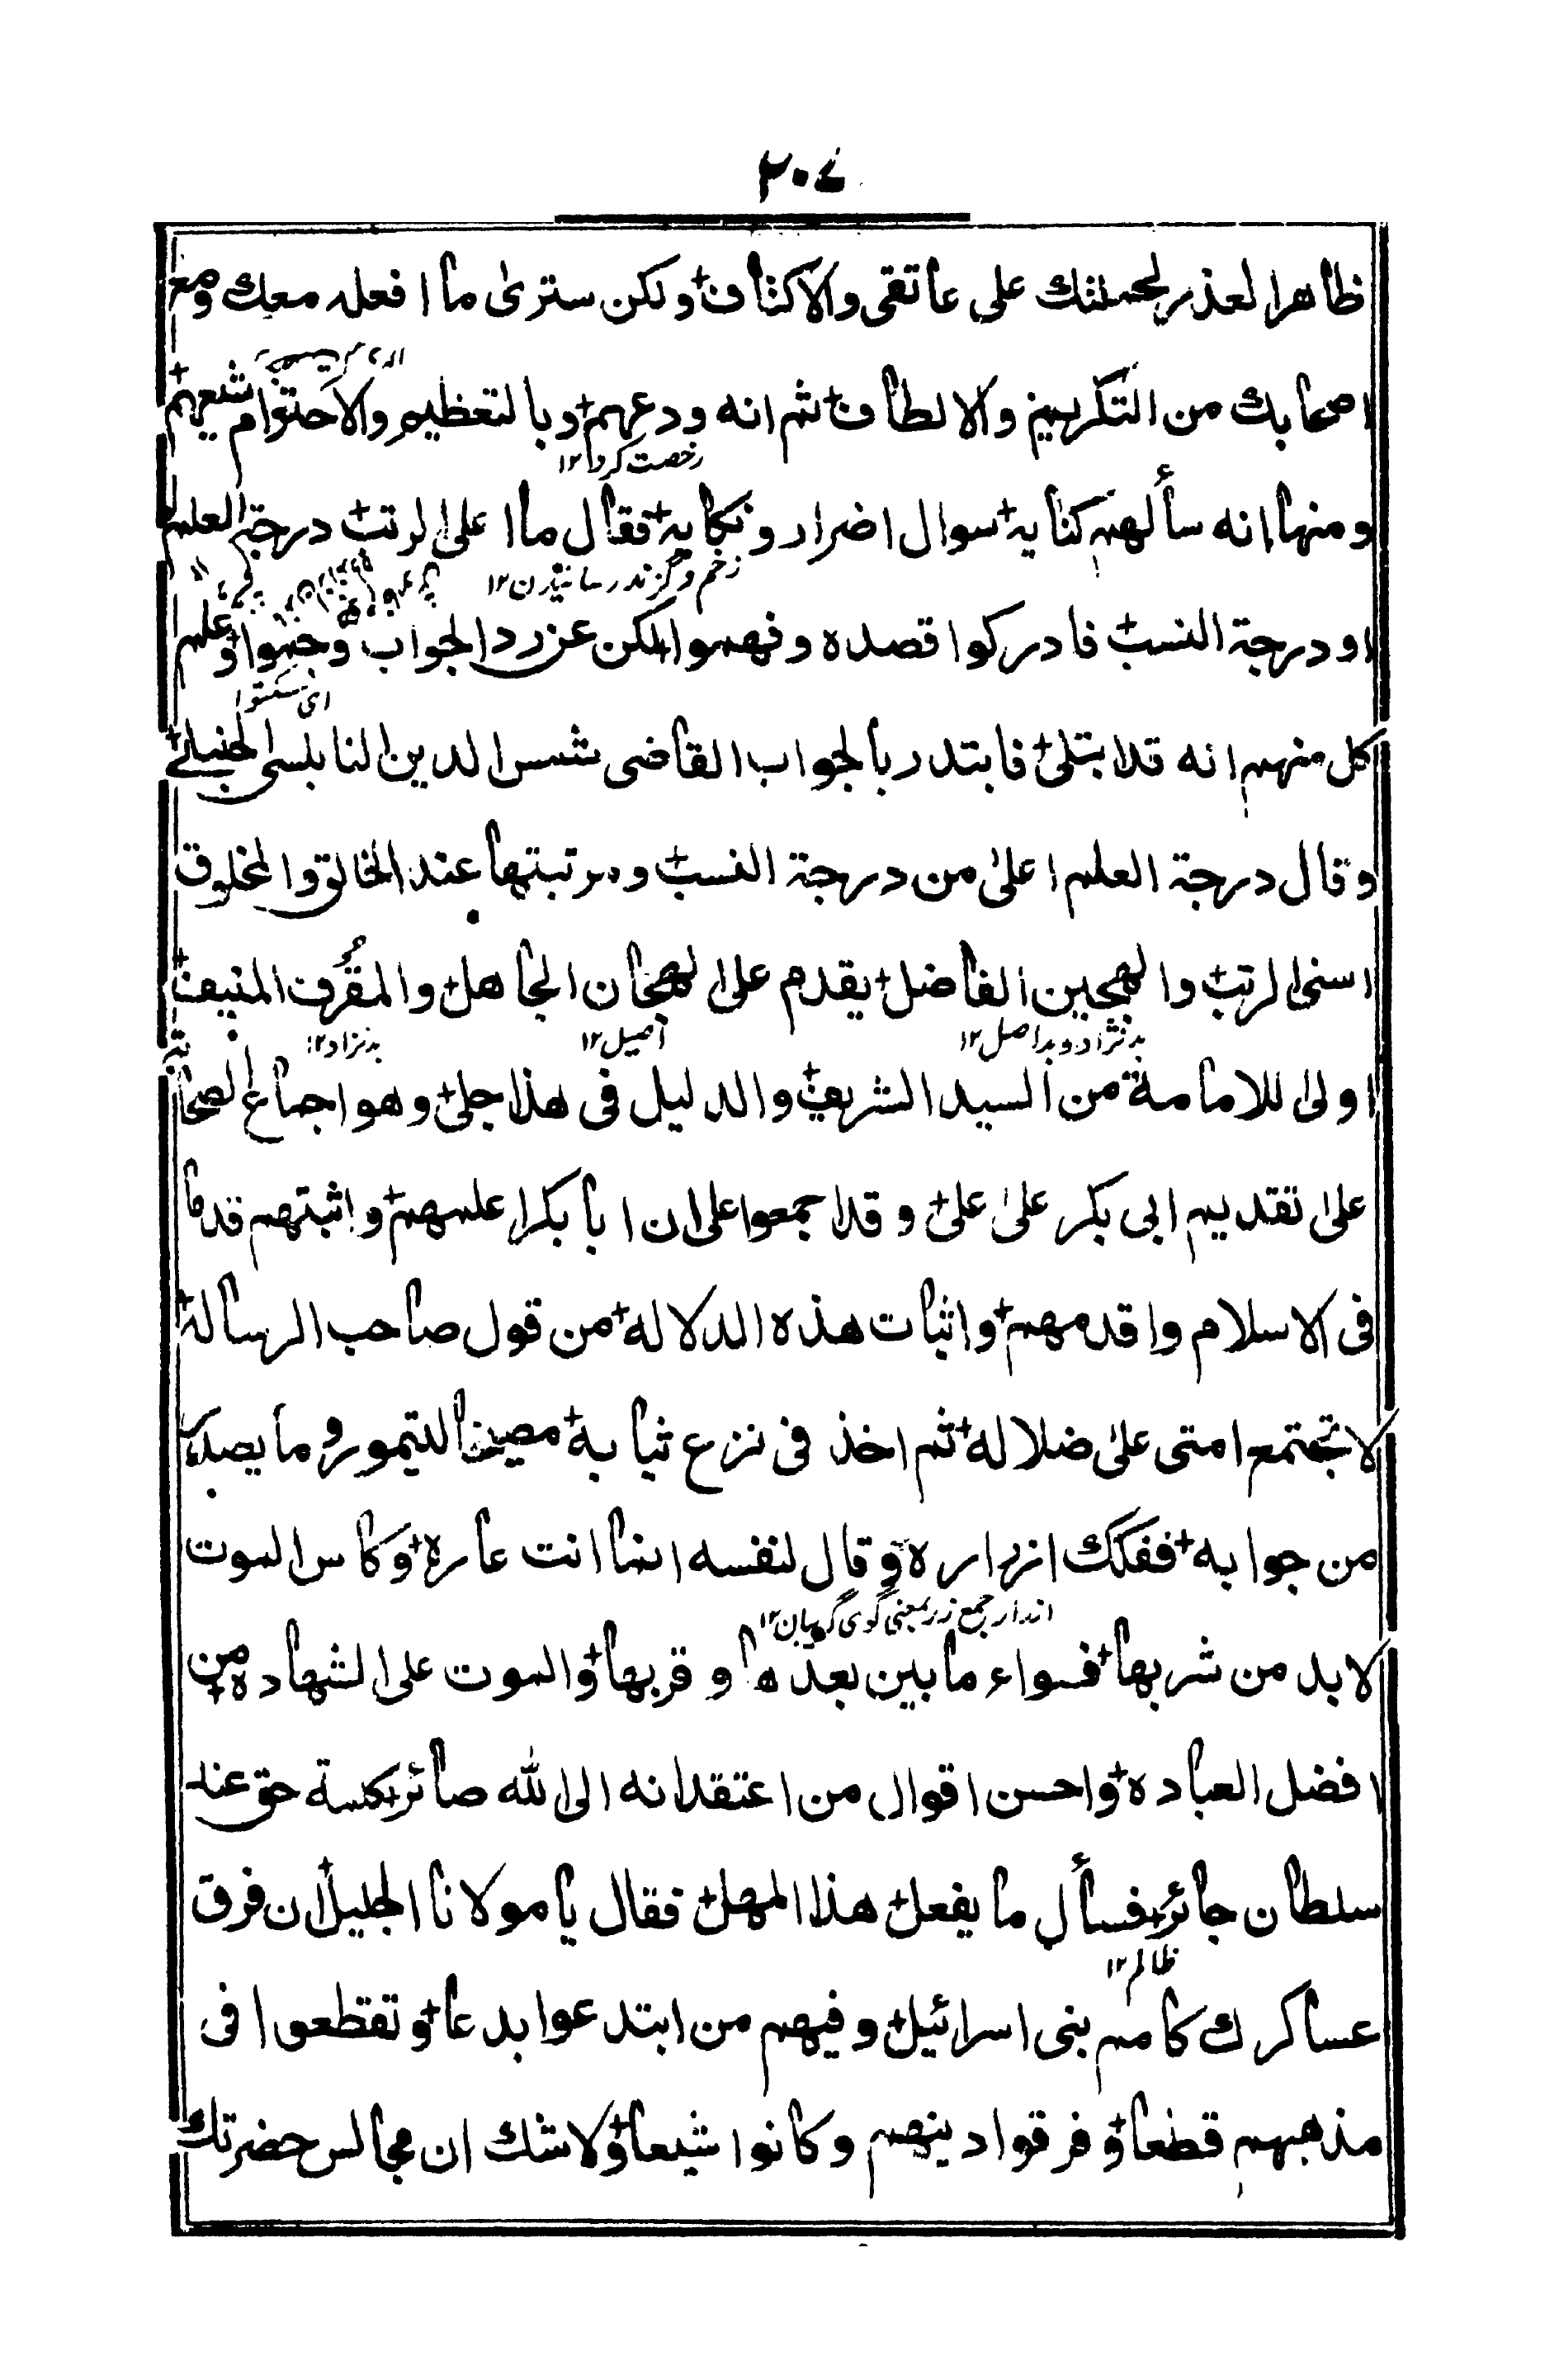 ٢٠٤
ظاهرا لعذر لحملتك على عاتقى والاكتاف ولكن سترى ما افعله معك ومع
اصحابك من التكريم والالطاف ثم انه ودعهم وبالتعظيم والاحترام شيعهم
رخصت كرد١٢
ومنها انه سألهم كناية سوال اضرار ونكاية فقال ما اعلى الرتب درجة العلم
زخم وگزند رسانيدن١٢
او درجة النسب فادركوا قصده وفهموا لكن عن رد الجواب وجموا وعلم
اى سكتوا
كل منهم انه قد ابتلى فابتدر بالجواب القاضى شمس الدين النابلسى الحنبلے
وقال درجة العلم اعلى من درجة النسب ومرتبتها عند الخالق والمخلوق
اسنى الرتب والهجين الفاضل يقدم على الهجان الجاهل والمقرف المنيف
بد نژاد وبد اصل١٢ اصيل١٢ بد نژاد١٢
اولى للامامة من السيد الشريف والدليل فى هذا جلى وهو اجماع الصحابة
على تقديم ابى بكر على على وقد اجمعوا على ان ابا بكر اعلمهم واثبتهم قدما
فى الاسلام واقدمهم واثبات هذه الدلاله من قول صاحب الرسالة
لا تجتمع امتى على ضلاله ثم اخذ فى نزع ثيابه مصيخا لتيمور وما يصدر
من جوابه ففكك ازراره وقال لنفسه انما انت عارة وكاس الموت
ازرار جمع زر بمعنى گوى گريبان١٢
لا بد من شربها فسواء ما بين بعدها وقربها والموت على الشهاده من
افضل العباده واحسن اقوال من اعتقد انه الى الله صائر كلمة حق عند
سلطان جائر فسأل ما يفعل هذا المهل فقال يا مولانا الجليل ان فرق
ظالم١٢
عساكرك كامم بنى اسرائيل وفيهم من ابتدعوا بدعا وتقطعوا فى
مذهبهم قطعا وفرقوا دينهم وكانوا شيعا ولا شك ان مجالس حضرتك